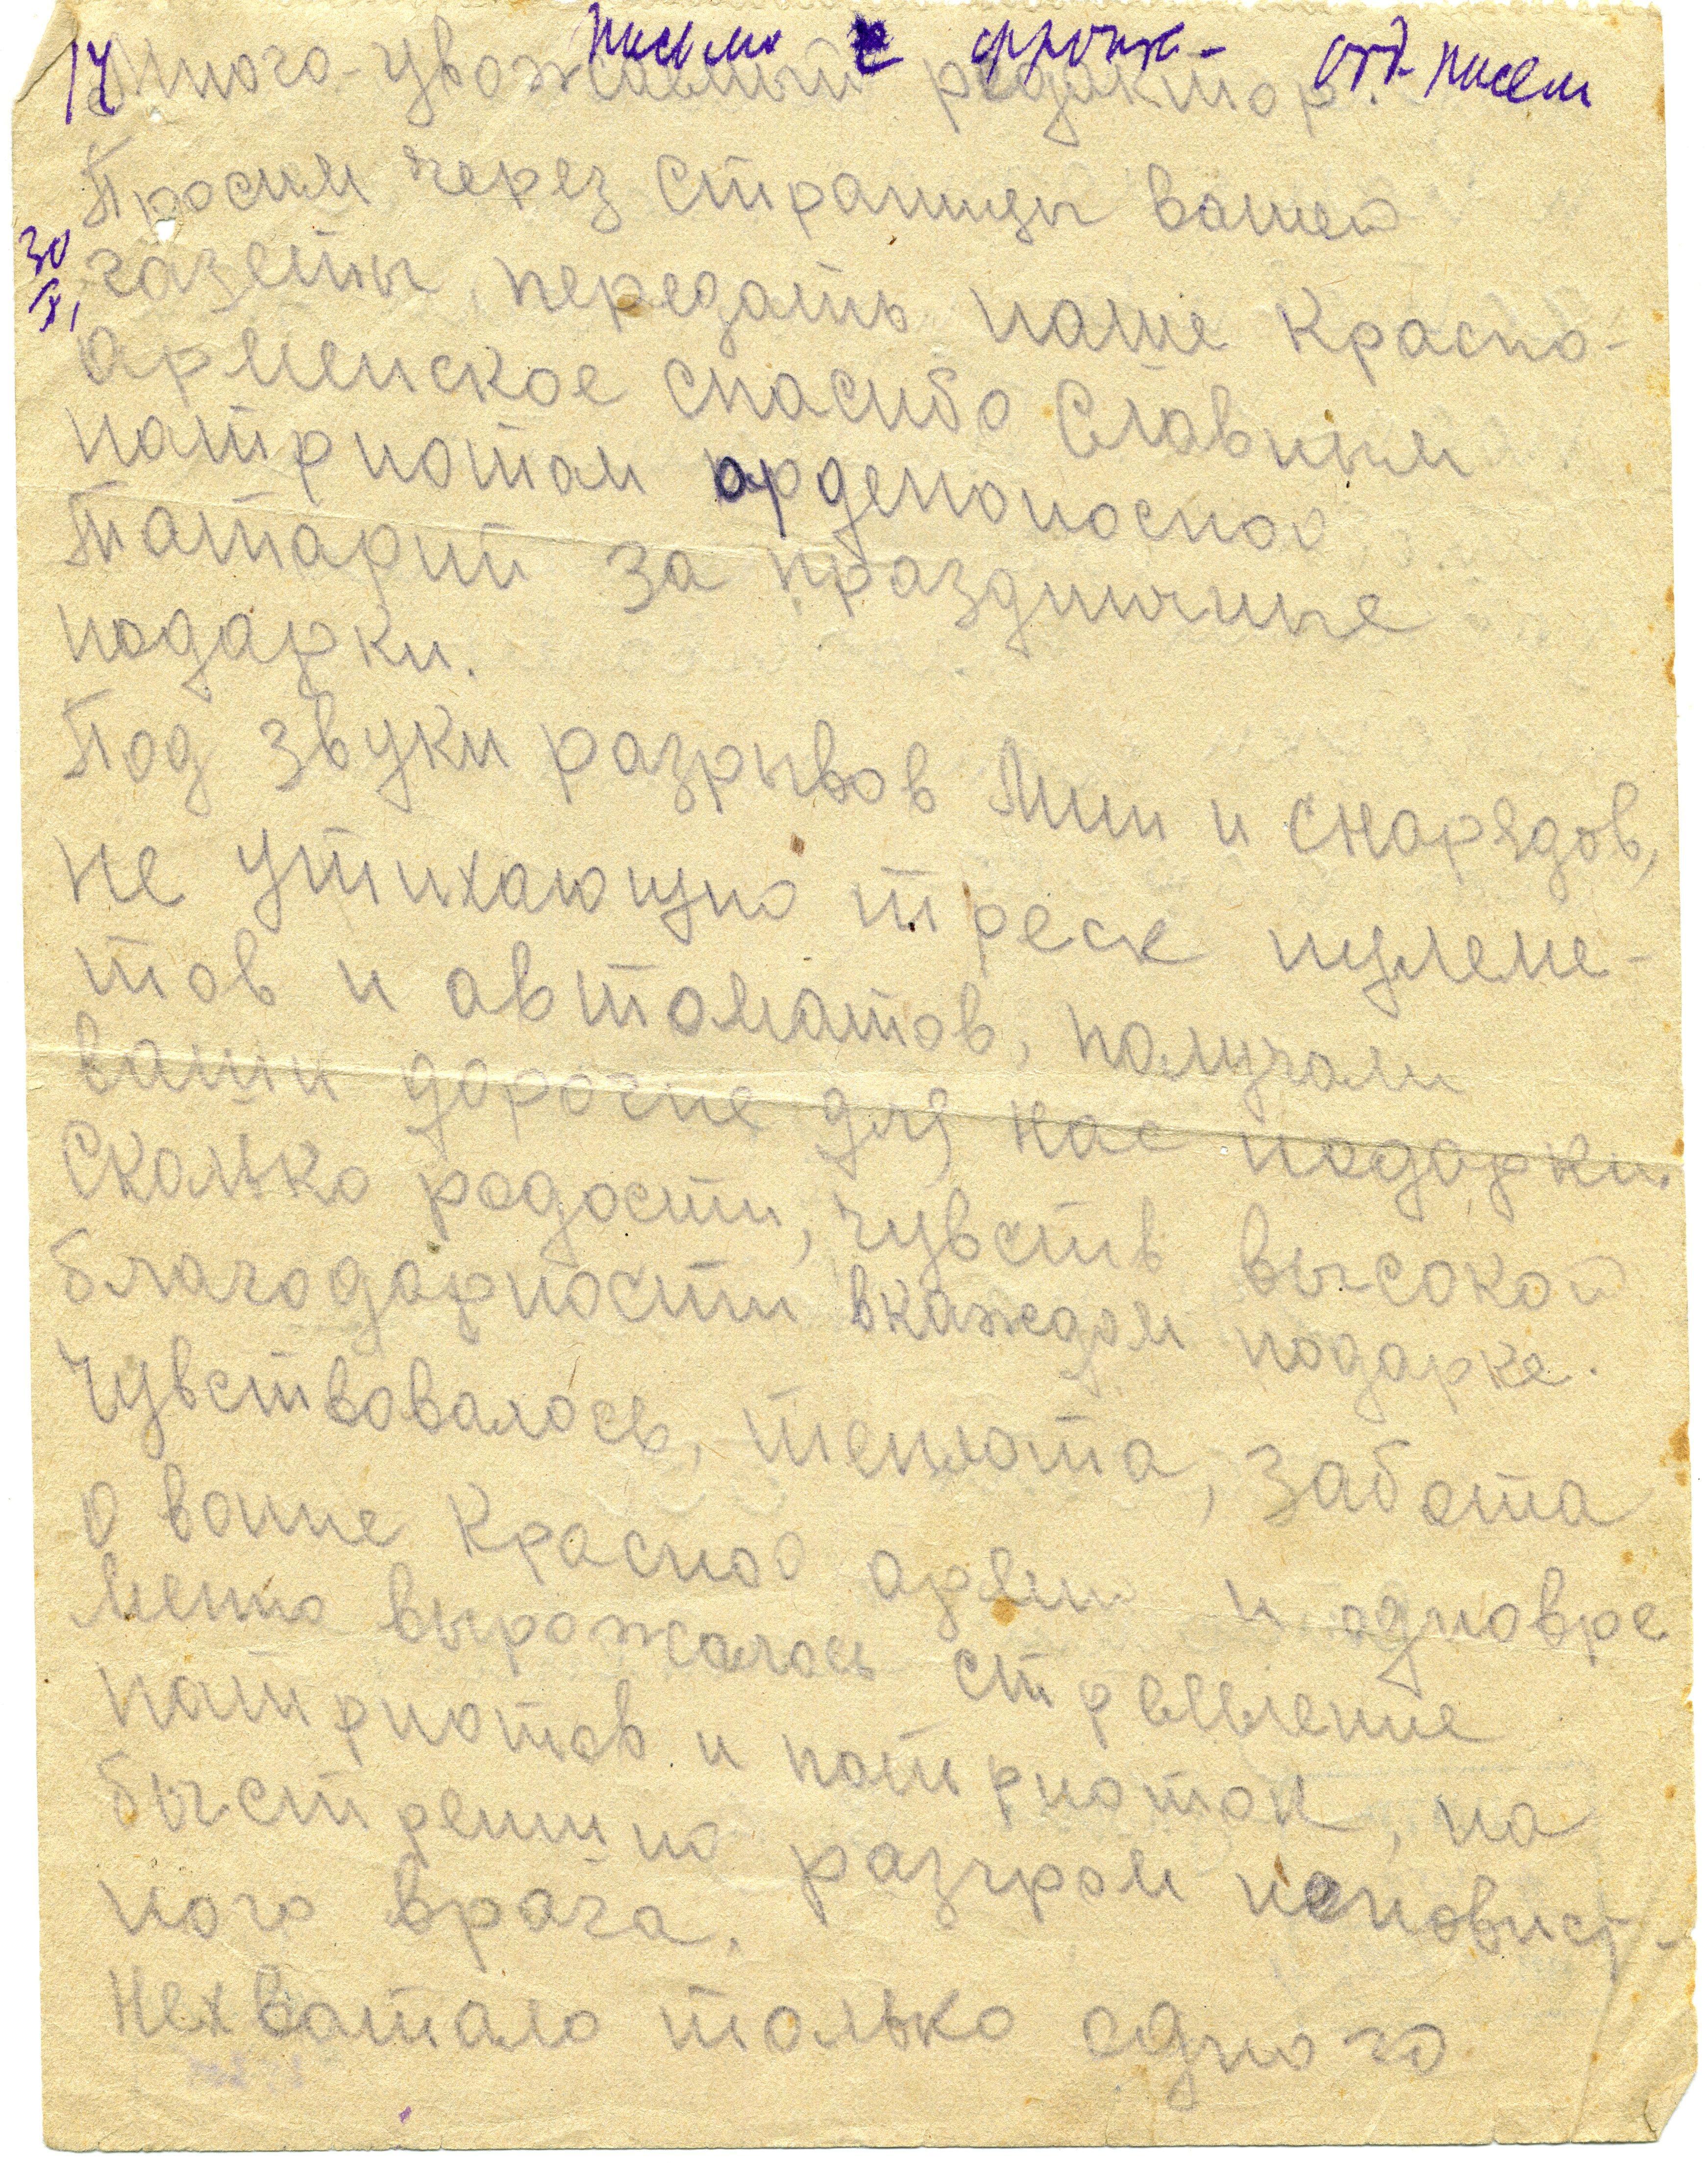 17 письмо с фронта- отд. писем
Много-уважаемый редактор.
Просим через страницы вашей
30
XI
газеты передать наше Красно-
армейское спасибо Славным
патриотам орденоносной
Татарии за праздничные
подарки.
Под звуки разрывов мин и снарядов,
не утихающую треск пулеме-
тов и автоматов, получали
ваши дорогие для нас подарки.
Сколько радости, чувств высокой
благодарности вкаждом подарке.
Чувствовалось, теплота, забота
о воине Красной армии и одновре
менно выражалось стремление
патриотов и патриоток, на
быстрейший разгром ненавист-
ного врага.
Нехватало только одного